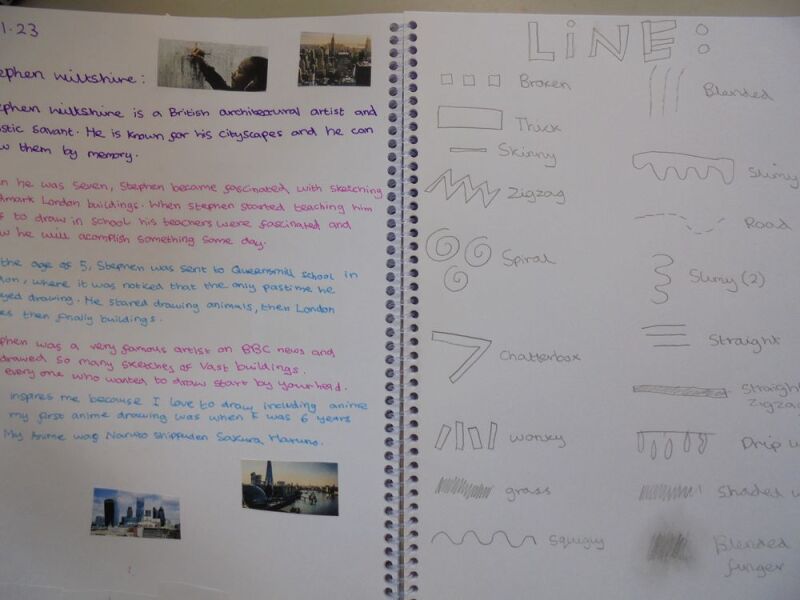 1.23
ephen wiltshire:
ephen wiltshire is a British architectural artist and
stic savant. He is known for his cityscapes and he can
w them by memory.
n he was seven, Stephen became fascinated with sketching
dmark London buildings. When Stephen started teaching him
s to draw in school his teachers were fascinated and
w he will acomplish something some day.
the age of 5, Stephen was sent to Queensmill school in
don, where it was noticed that the only pastime he
yed drawing. He stared drawing animals, then London
es then finally buildings.
phen was a very famous artist on BBC news and
drawed so many sketches of Vast buildings.
every one who wanted to draw start by your head.
inspires me because I love to draw including anime
my first anime drawing was when I was 6 years
My Anime was Naruto shippuden Sakura Haruno.
LiNE:
Broken
Thick
Skinny
Zigzag
Spiral
Chatterbox
wonky
grass
Squiguy
Blended
Slimy
Road
Slimy (2)
Straight
Straight
Zigzag
Drip
Shaded
Blended
finger